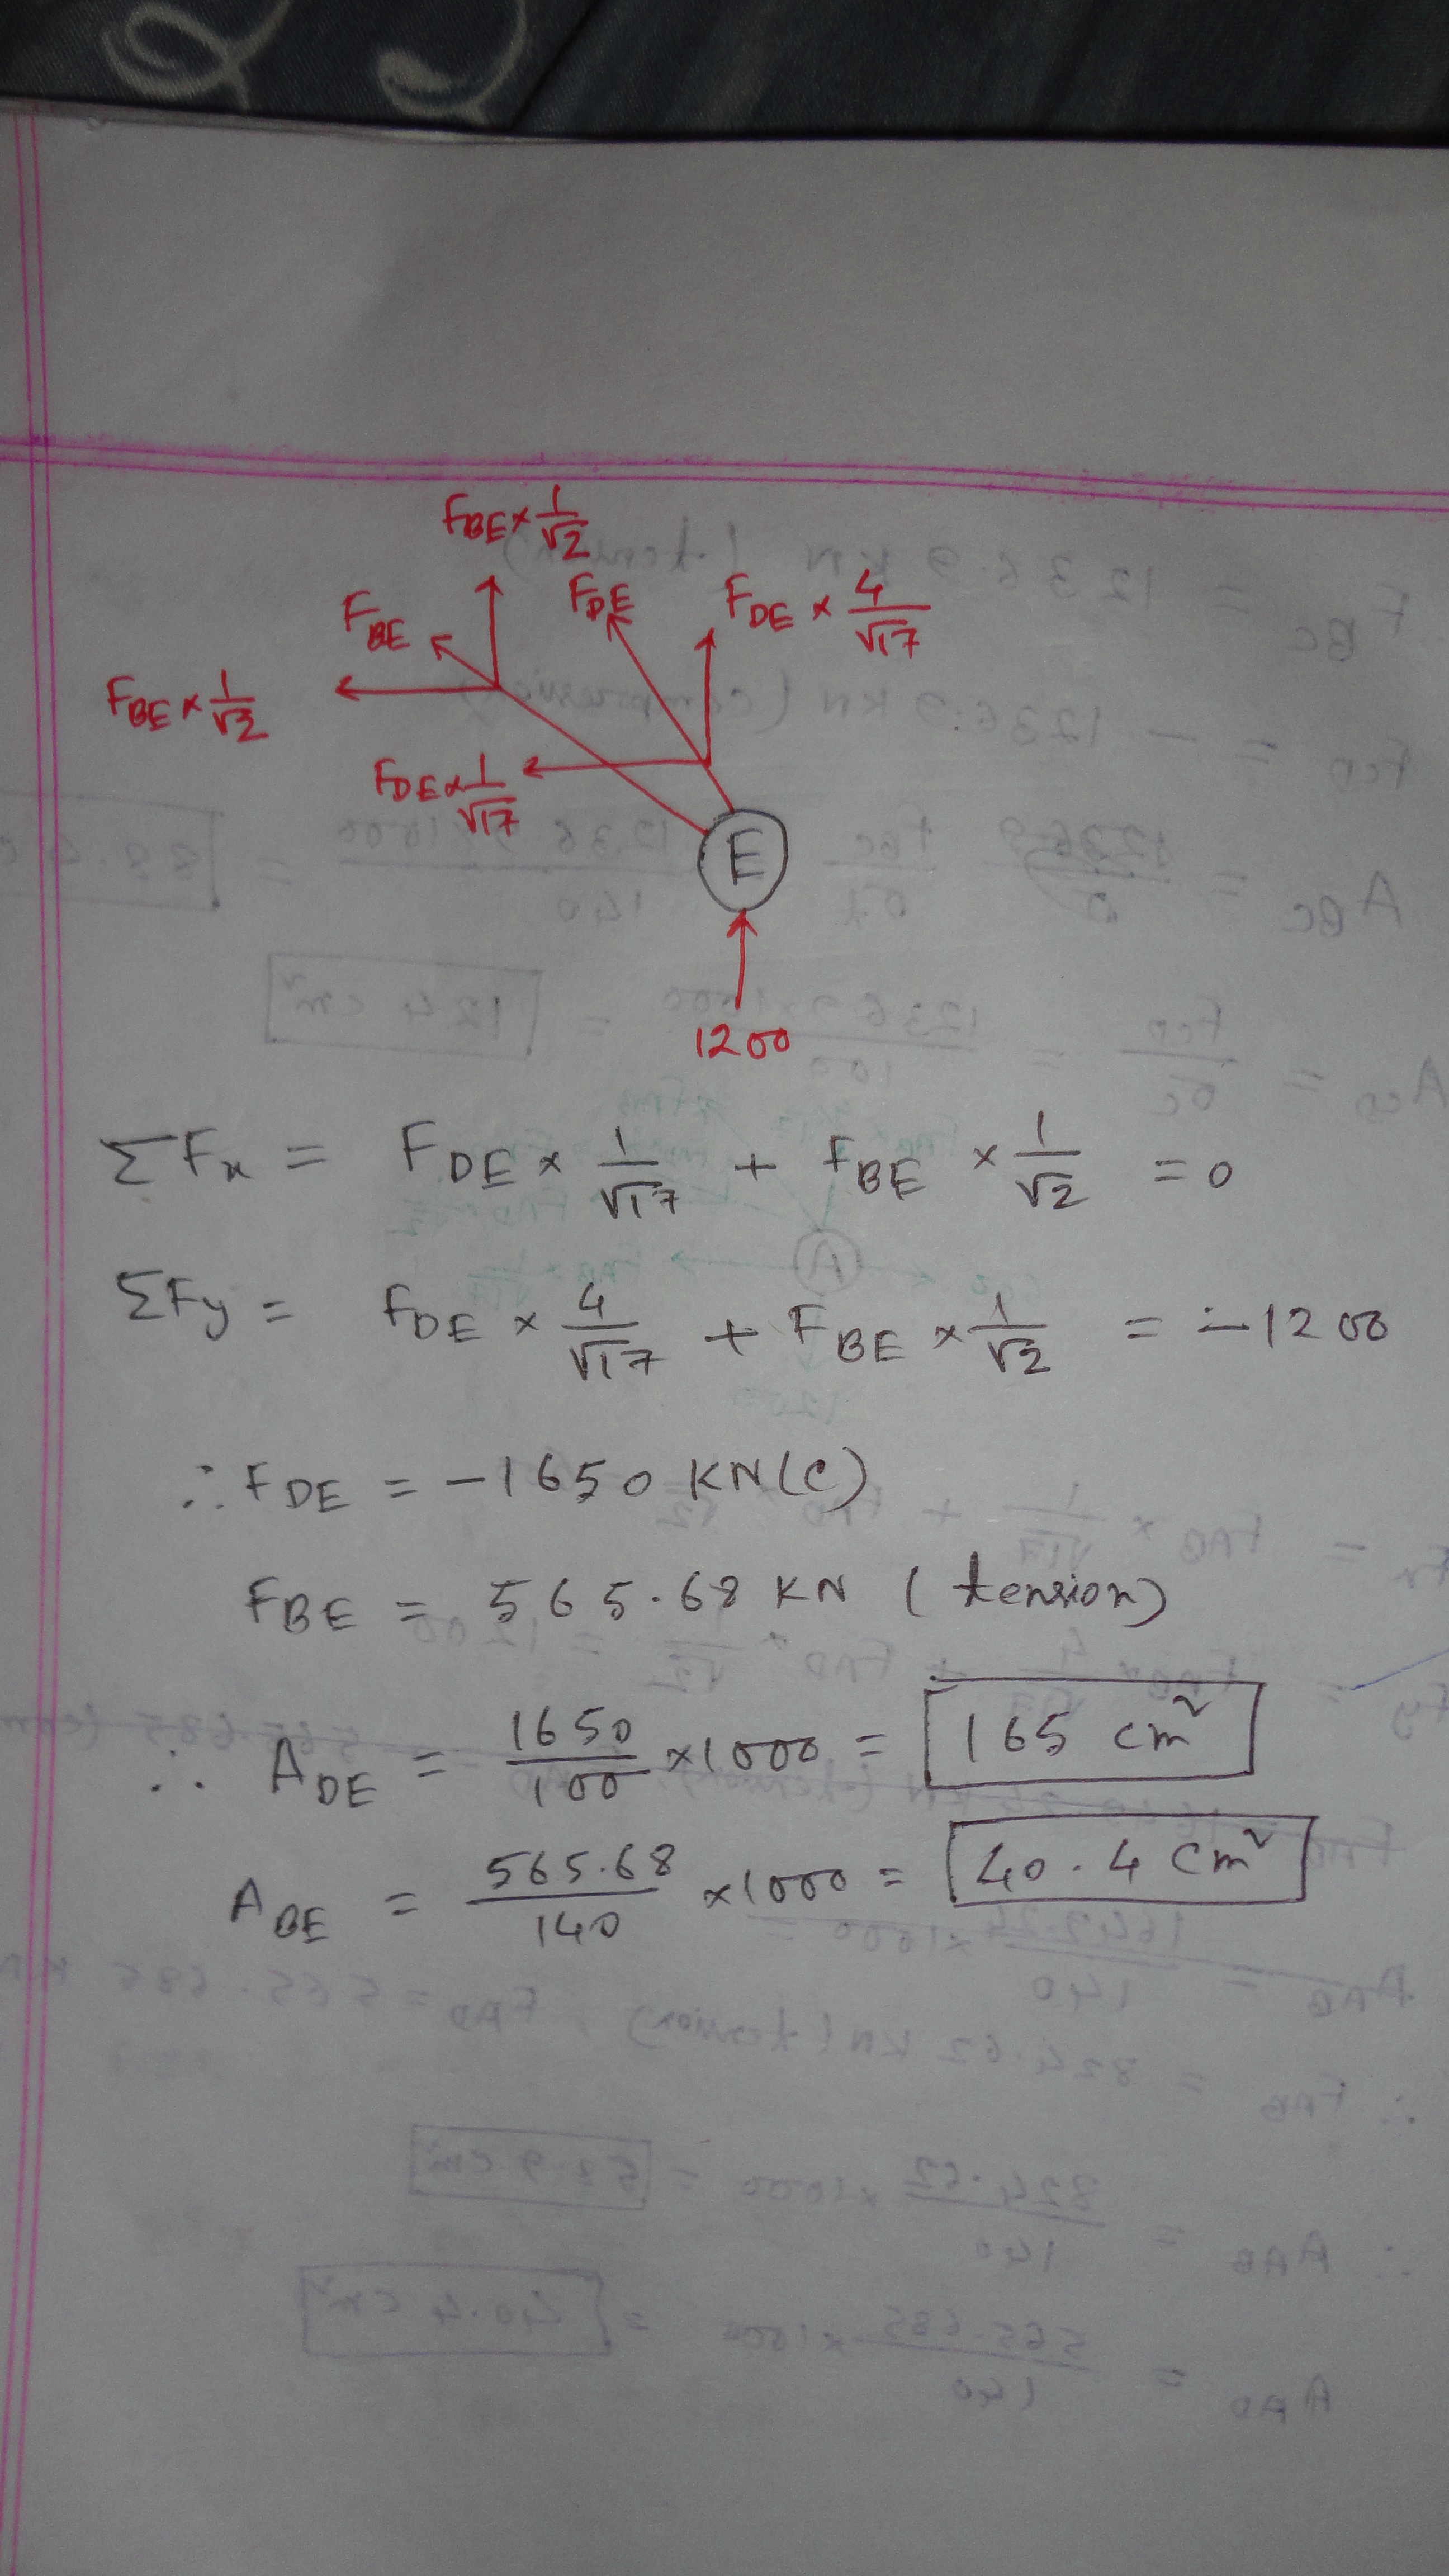 F_BE × 1/√2
F_BE
F_DE
F_DE × 4/√17
F_BE × 1/√2
F_DE × 1/√17
E
1200
ΣFx = F_DE × 1/√17 + F_BE × 1/√2 = 0
ΣFy = F_DE × 4/√17 + F_BE × 1/√2 = -1200
∴ F_DE = -1650 KN(C)
F_BE = 565.68 KN (tension)
∴ A_DE = 1650/100 ×1000 = 165 cm²
A_BE = 565.68/140 ×1000 = 40.4 cm²